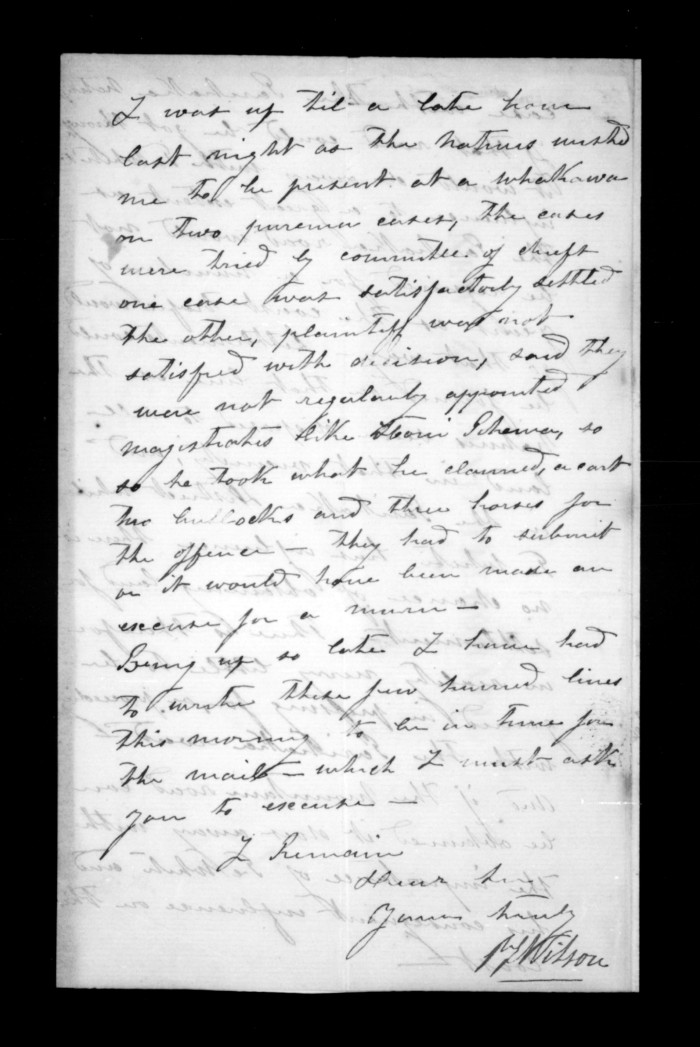 I was up til a late hour
last night as the natives wished
me to be present at a whakawa
on two puremu cases, the cases
were tried by committee of chiefs
one case was satisfactorily settled
the other, plaintiff was not
satisfied with decision, said they
were not regularly appointed
magistrates like Ihema, so
so he took what he claimed, a cart
two bullocks and three horses for
the offence – they had to submit
or it would have been made an
excuse for a muru –
Being up so late I have had
to write these few hurried lines
this morning to be in time for
the mail – which I must ask
you to excuse –
I Remain
Dear Sir
Yours truly
Wilson